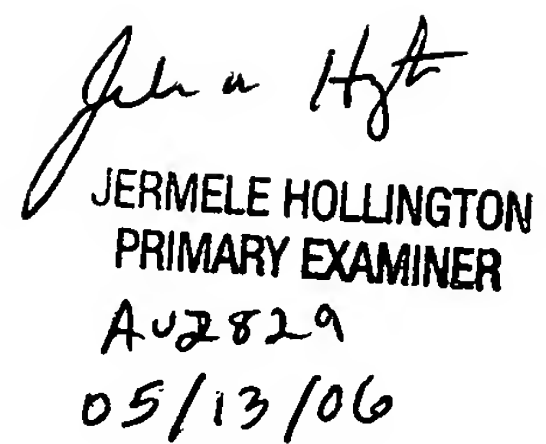 JERMELE HOLLINGTON
PRIMARY EXAMINER
AU2829
05/13/06